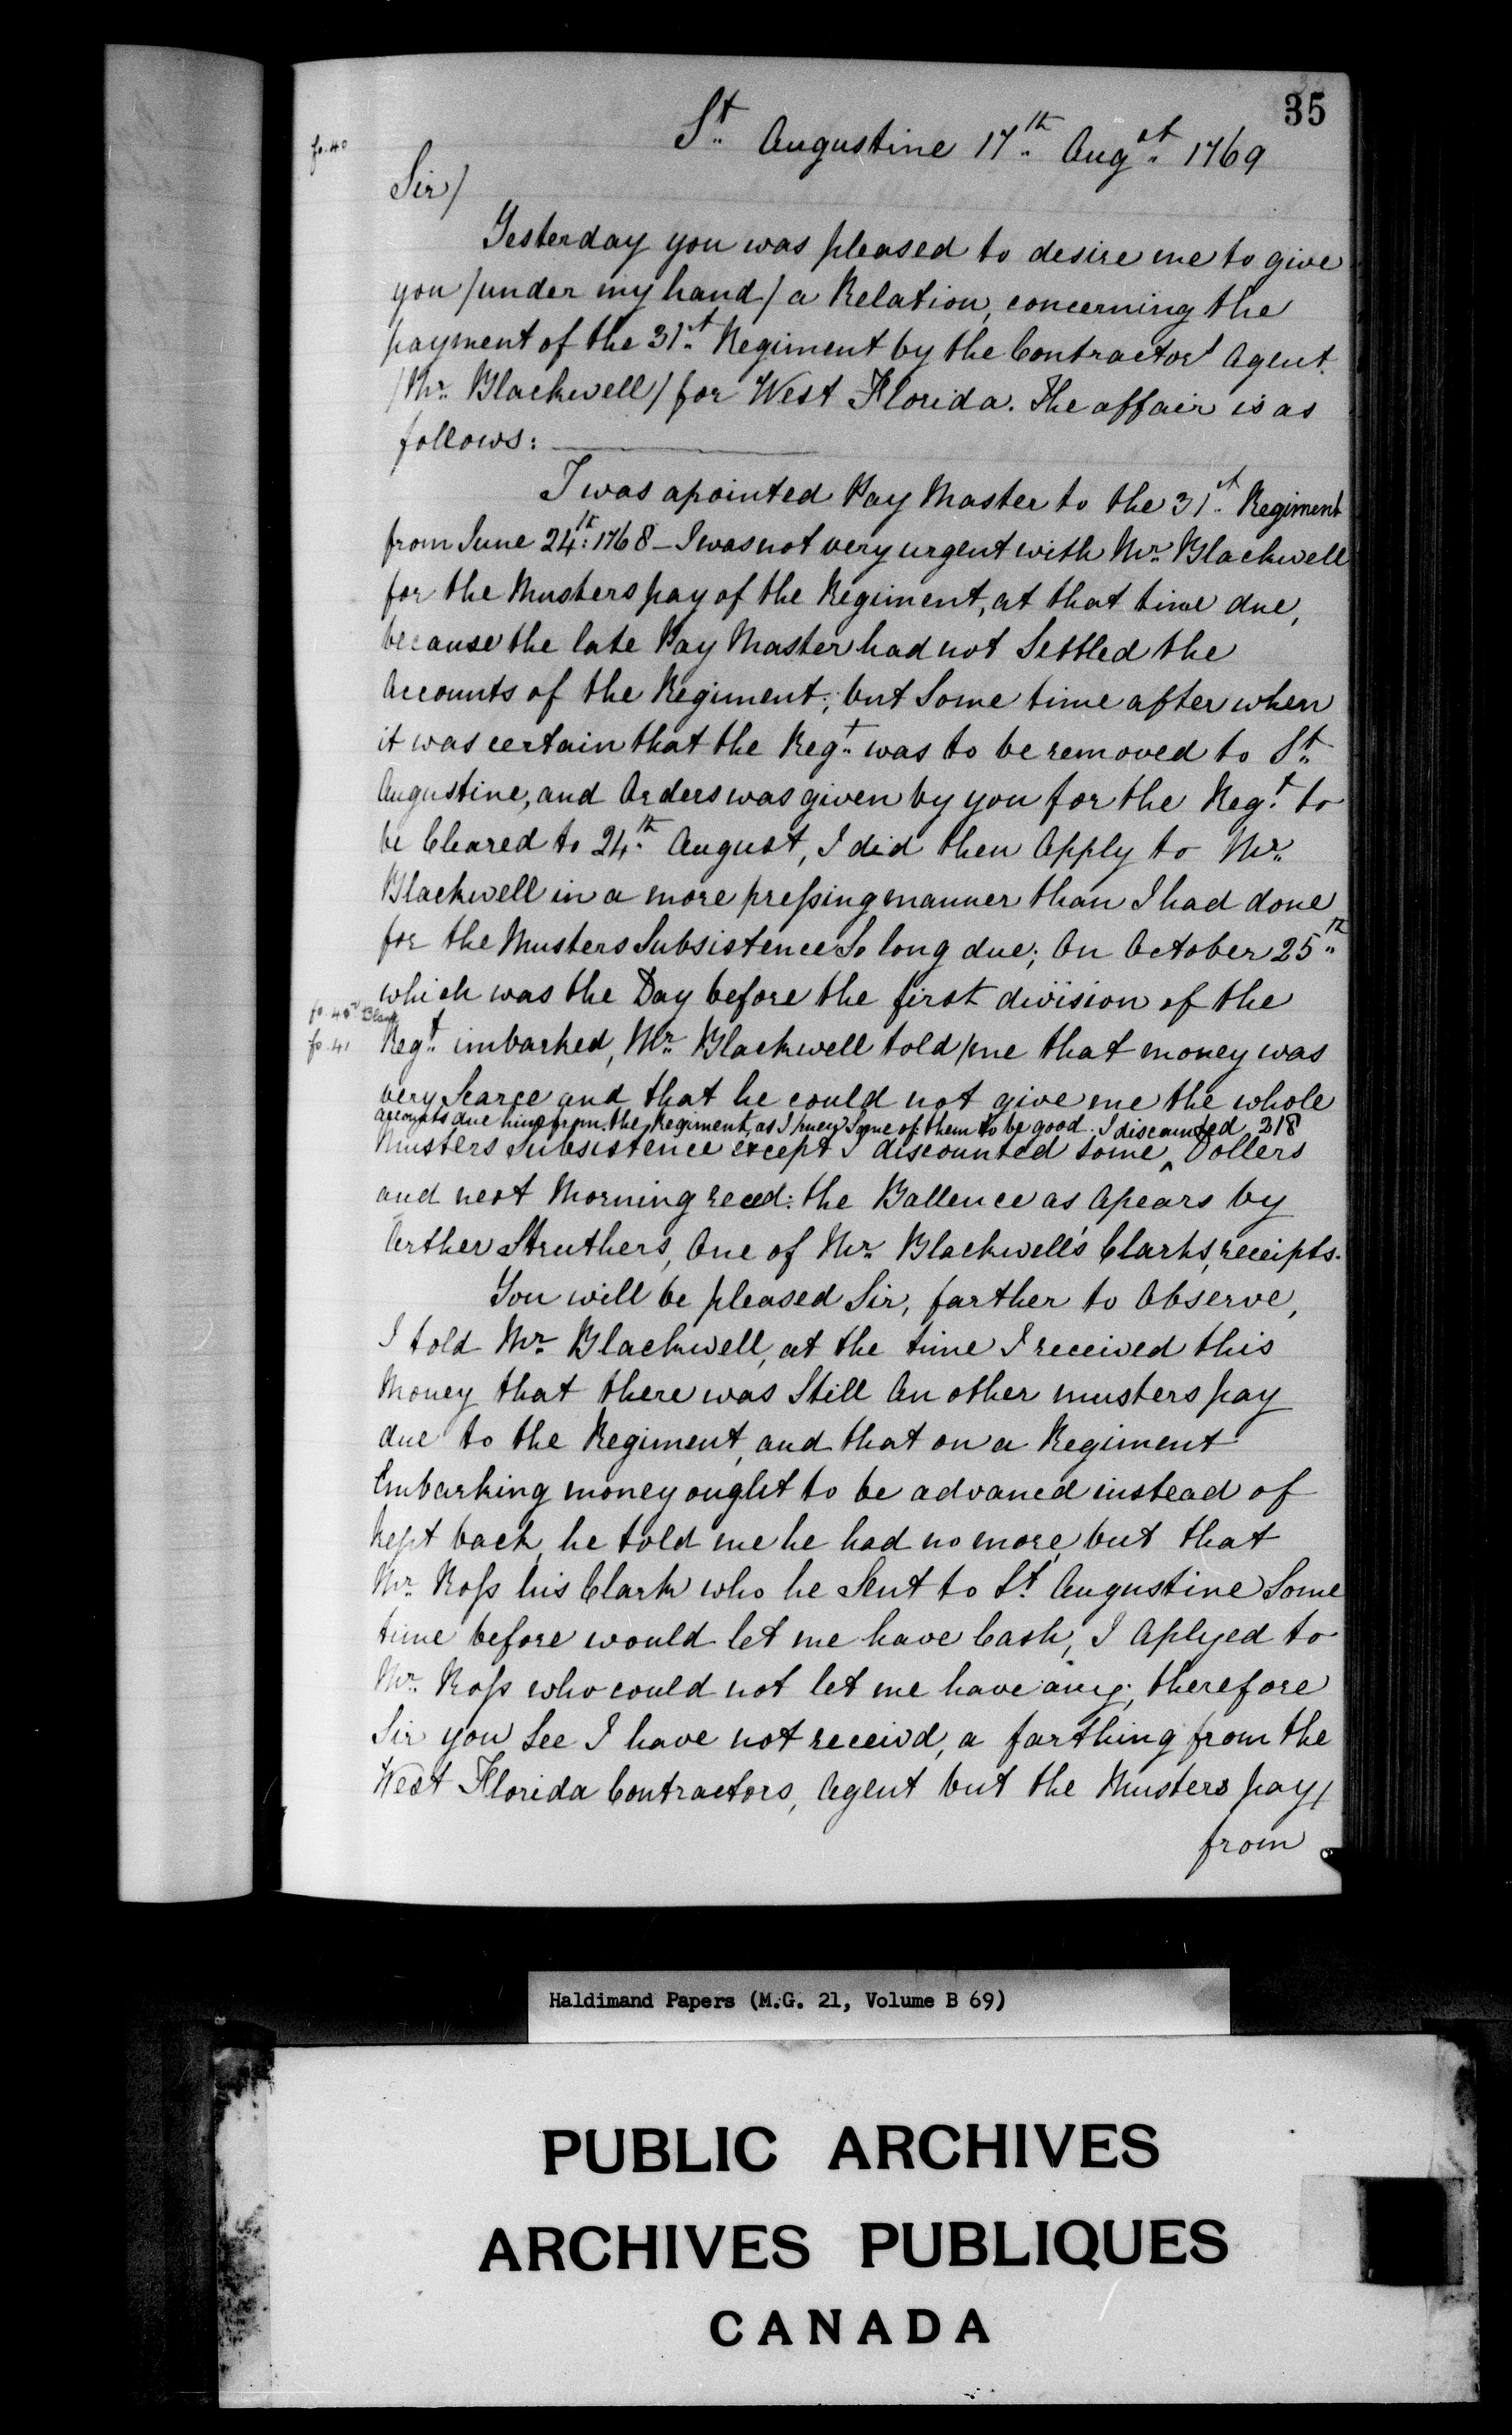 35
fo. 40
St. Augustine 17th. Augst. 1769
Sir/
Yesterday you was pleased to desire me to give
you /under my hand/ a Relation, concerning the
payment of the 31st. Regiment by the Contractors Agent.
/Mr. Blackwell/ for West Florida. The affair is as
follows:
I was apointed Pay Master to the 31st. Regiment
from June 24th: 1768 - I was not very urgent with Mr. Blackwell
for the Musters pay of the Regiment, at that time due,
because the late Pay Master had not Settled the
Accounts of the Regiment; but Some time after when
it was certain that the Regt. was to be removed to St.
Augustine, and Orders was given by you for the Regt. to
be Cleared to 24th. August, I did then Apply to Mr.
Blackwell in a more pressing manner than I had done
for the Musters Subsistence So long due; On October 25th.
which was the Day before the first division of the
fo. 40v Blank
fo. 41
Regt. imbarked, Mr. Blackwell told me that money was
very Scarce and that he could not give me the whole
accounts due him from the Regiment, as I knew Some of them to be good. I discounted 318
Musters Subsistence except I discounted some ^ Dollers
and next Morning reced: the Ballence as Apears by
Arther Struthers, One of Mr. Blackwell's Clarks, receipts.
You will be pleased Sir, farther to Observe,
I told Mr. Blackwell, at the time I received this
Money that there was Still An other musters pay
due to the Regiment, and that on a Regiment
Embarking money ought to be advanced instead of
Kept back, he told me he had no more, but that
Mr. Ross his Clark who he Sent to St. Augustine Some
time before would let me have Cash, I Aplyed to
Mr. Ross who could not let me have any; therefore
Sir you See I have not receivd, a farthing from the
West Florida Contractors, Agent but the Musters pay/
from
Haldimand Papers (M.G. 21, Volume B 69)
PUBLIC ARCHIVES
ARCHIVES PUBLIQUES
CANADA